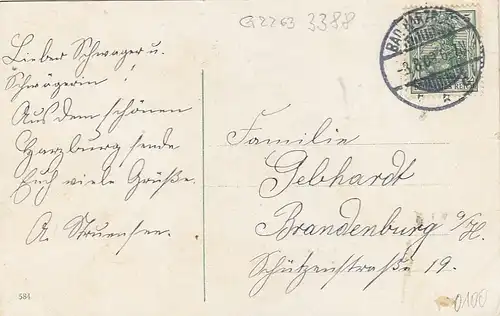 G2263 3388
BAD HARZBURG
Lieber Schwager u.
Schwägerin!
Aus dem schönen
Harzburg sende
Euch viele Grüße.
A. Struensee.
Familie
Gebhardt
Brandenburg a/H.
Schützenstraße 19.
584
0100